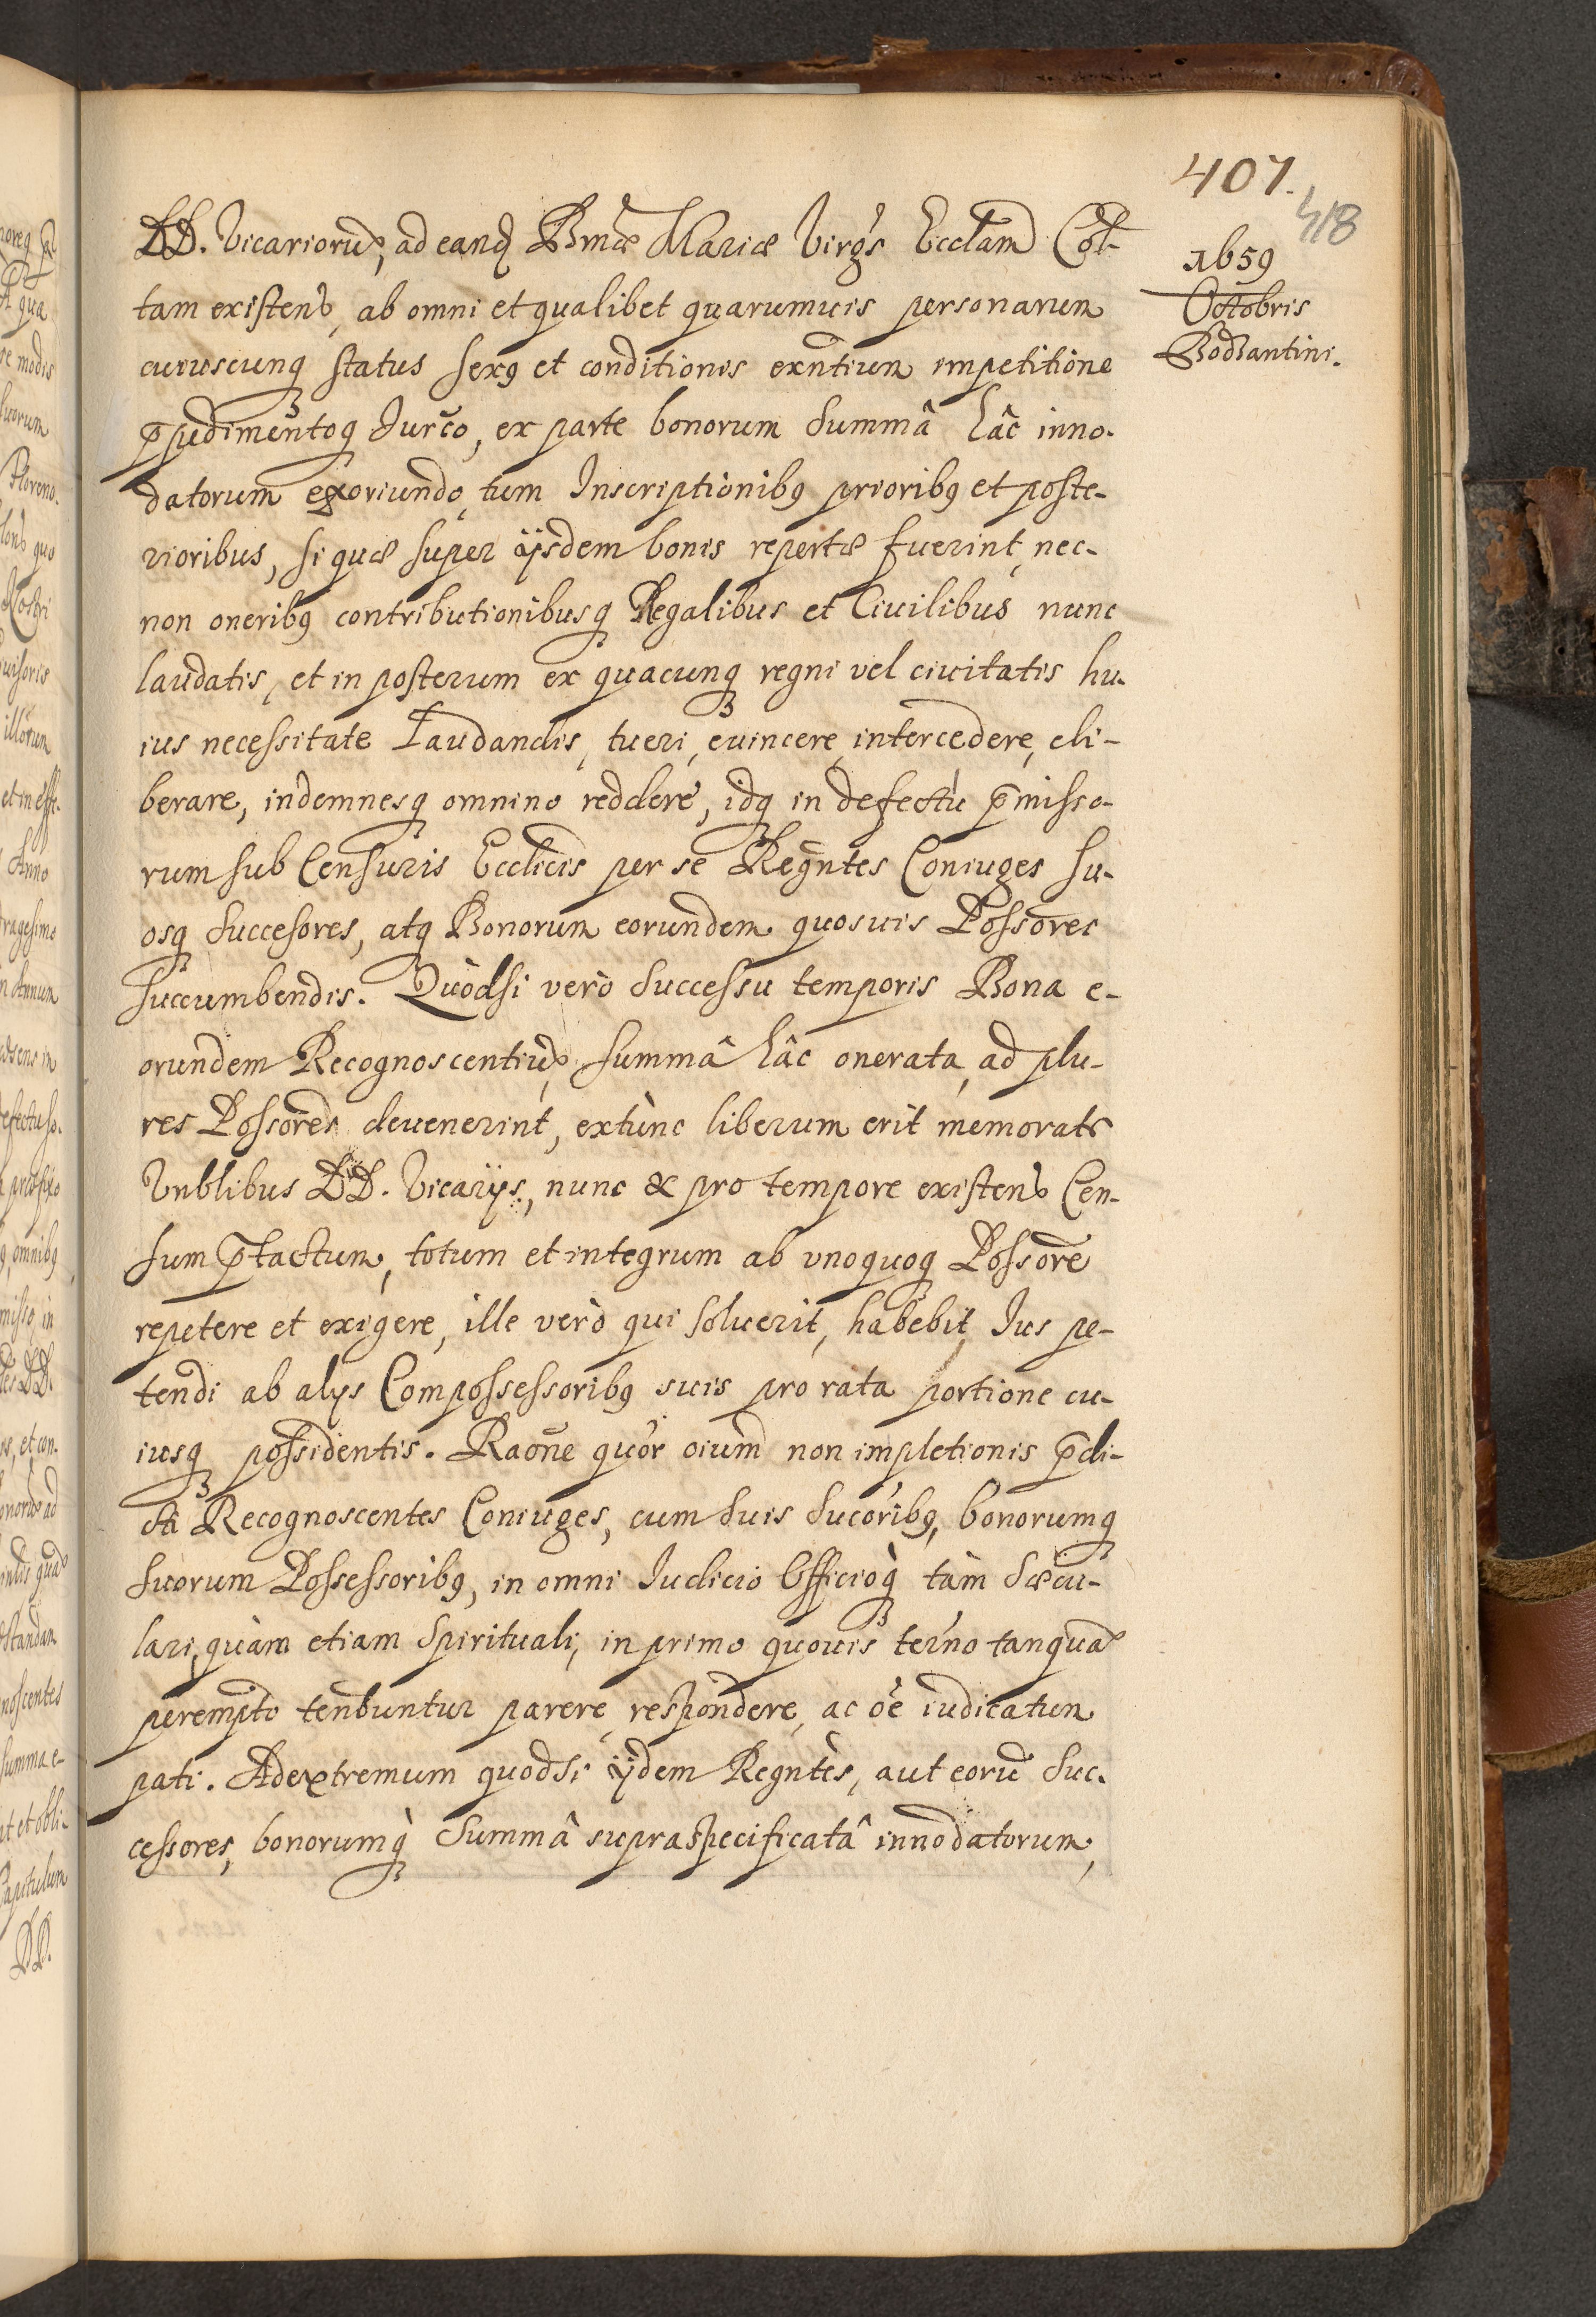 407.
418
1659
Octobris
Bodzantini.
DD. Vicariorũ, ad eanđ Bmæ Mariæ Virg's Ecclam Col-
tam existens, ab omni et qualibet quarumuis personarum
cuiuscunq status sexq et conditionis exntium impetitione
p̄pedimentoq Jurco, ex parte bonorum Summâ hâc inno-
datorum exoriundo, tum Inscriptionibq prioribq et poste-
rioribus, si quæ super ijsdem bonis repertæ fuerint, nec-
non oneribq contributionibusq Regalibus et Ciuilibus nunc
laudatis, et in posterum ex quacunq regni vel ciuitatis hu-
ius necessitate Laudandis, tueri, euincere, intercedere, eli-
berare, indemnesq omnino reddere, idq in defectu p̄misso-
rum sub Censuris Ecclicis per se Regntes Coniuges su-
osq Succesores, atq Bonorum eorundem quosuis Possores
succumbendis. Quòdsi verò Successu temporis Bona e-
orundem Recognoscentiũ, summâ hâc onerata, ad plu-
res Possores deuenerint, extùnc liberum erit memorats
Vnblibus DD. Vicarijs, nunc & pro tempore existens Cen-
sum p̄tactum, totum et integrum ab vnoquoq Possore
repetere et exigere, ille verò qui soluerit, habebit Ius pe-
tendi ab alijs Compossessoribq suis pro rata portione cu-
iusq possidentis. Raone quor oium non impletionis p̄di-
cti Recognoscentes Coniuges, cum Suis Sucoribq, bonorumq
Suorum Possessoribq, in omni Iudicio Officioq tàm Sæcu-
lari, quàm etiam Spirituali, in primo quouis terno tanquã
perempto tenbuntur parere, respondere, ac oe iudicatum
pati. Adextremum quodsi ijdem Regntes, aut eorũ Suc-
cessores, bonorumq Summâ supraspecificatâ innodatorum,